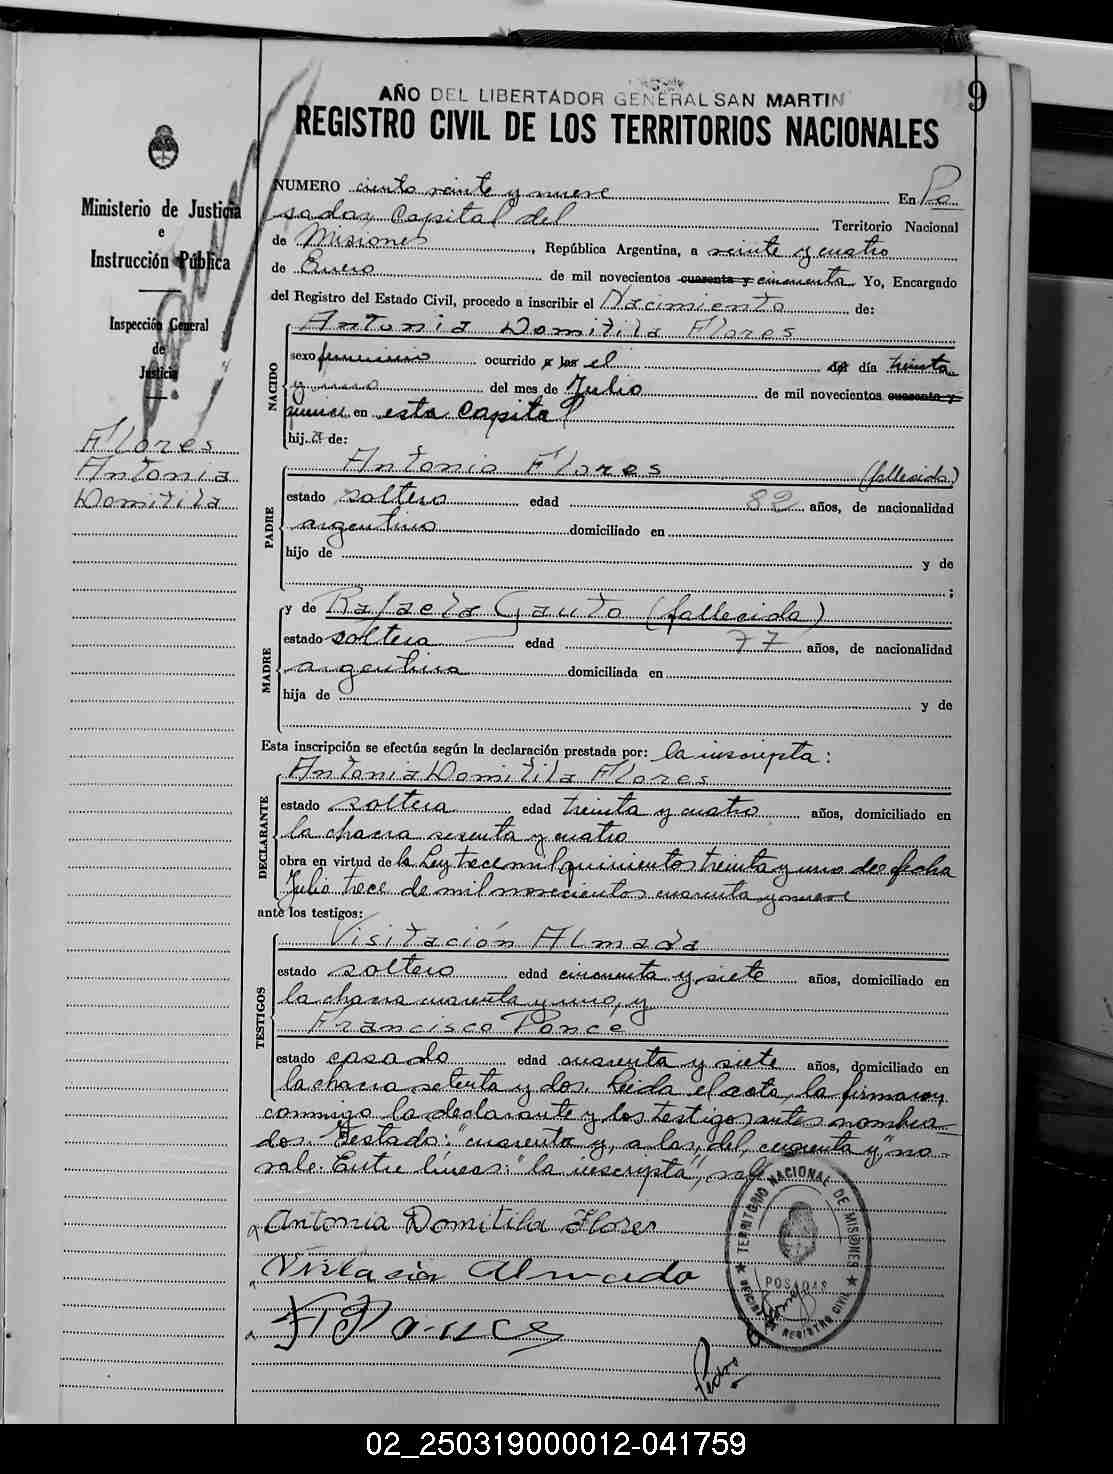 AÑO DEL LIBERTADOR GENERAL SAN MARTIN
9
REGISTRO CIVIL DE LOS TERRITORIOS NACIONALES
Ministerio de Justicia
e
Instrucción Pública
Inspección General
de
Justicia
Flores
Antonia
Domitila
NUMERO ciento veinte y nueve En Po
sadas Capital del Territorio Nacional
de Misiones, República Argentina, a veinte y cuatro
de Enero de mil novecientos cuarenta y cincuenta Yo, Encargado
del Registro del Estado Civil, procedo a inscribir el Nacimiento de:
NACIDO
Antonia Domitila Flores
sexo femenino ocurrido a las el del día treinta
y uno del mes de Julio de mil novecientos cuarenta y
quince en esta Capital
hija de:
PADRE
Antonio Flores (fallecido)
estado soltero edad 82 años, de nacionalidad
argentino domiciliado en
hijo de y de
;
MADRE
y de Rafaela Gauto (fallecida)
estado soltera edad 77 años, de nacionalidad
argentina domiciliada en
hija de y de
Esta inscripción se efectúa según la declaración prestada por: la inscripta:
DECLARANTE
Antonia Domitila Flores
estado soltera edad treinta y cuatro años, domiciliado en
la chacra sesenta y cuatro
obra en virtud de la Ley trece mil quinientos treinta y uno de fecha
Julio trece de mil novecientos cuarenta y nueve
ante los testigos:
TESTIGOS
Visitación Almada
estado soltero edad cincuenta y siete años, domiciliado en
la chacra cuarenta y uno, y
Francisco Ponce
estado casado edad cuarenta y siete años, domiciliado en
la chacra setenta y dos. Leida el acta, la firmaron
conmigo la declarante y los testigos antes nombra-
dos. Testado: "cuarenta y, a las, del, cuarenta y", no
vale. Entre líneas: "la inscripta", vale
Antonia Domitila Flores
Visitacion Almada
F Ponce
TERRITORIO NACIONAL DE MISIONES
POSADAS
OFICINA DE REGISTRO CIVIL
Pedro
02_250319000012-041759